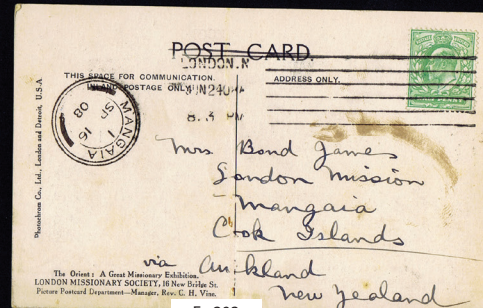 POST CARD.
LONDON. N
THIS SPACE FOR COMMUNICATION.
INLAND POSTAGE ONLY
ADDRESS ONLY.
MANGAIA
16
08
Photochrom Co., Ltd., London and Detroit, U.S.A
Mrs Bond James
London Mission
Mangaia
Cook Islands
via Auckland
New Zealand
The Orient: A Great Missionary Exhibition.
LONDON MISSIONARY SOCIETY, 16 New Bridge St.
Picture Postcard Department—Manager, Rev. C. H. Vine.